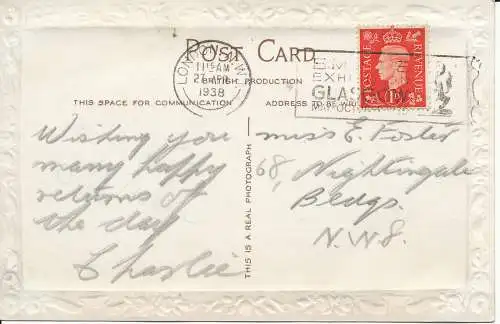 POST CARD
BRITISH PRODUCTION
THIS SPACE FOR COMMUNICATION
ADDRESS TO BE
LONDON N.W
11 15 AM
27 APR
1938
EMPIRE
EXHIBITION
GLASGOW
MAY-OCT
POSTAGE
REVENUE
1D
Wishing you
many happy
returns of
the day
Charlie
THIS IS A REAL PHOTOGRAPH
Miss E Foster
68, Nightingale
Bldgs.
N.W8.